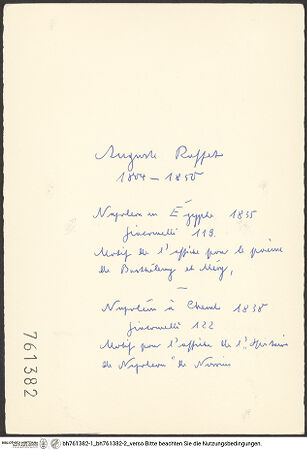 Auguste Raffet
1804 – 1860
Napoleon en Égypte 1835
Giacomelli 119.
Motif de l'affiche pour le poème
de Barthélemy et Méry,
—
Napoléon à Cheval 1838
Giacomelli 122
Motif pour l'affiche de l'"Histoire
de Napoleon" de Norvins
761382
bh761382-1_bh761382-2_verso Bitte beachten Sie die Nutzungsbedingungen.